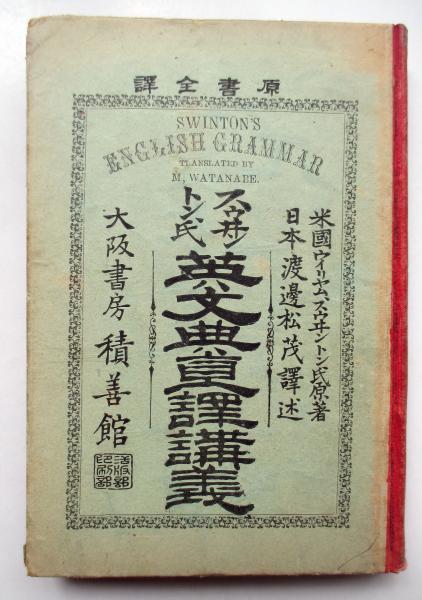 譯全書原
SWINTON'S
ENGLISH GRAMMAR
TRANSLATED BY
M, WATANABE.
米國ウイリヤム、スウ井ントン氏原著
日本渡邊松茂譯述
スウ井ントン氏
英文典直譯講義
大阪書房 積善館
活版部
印刷部